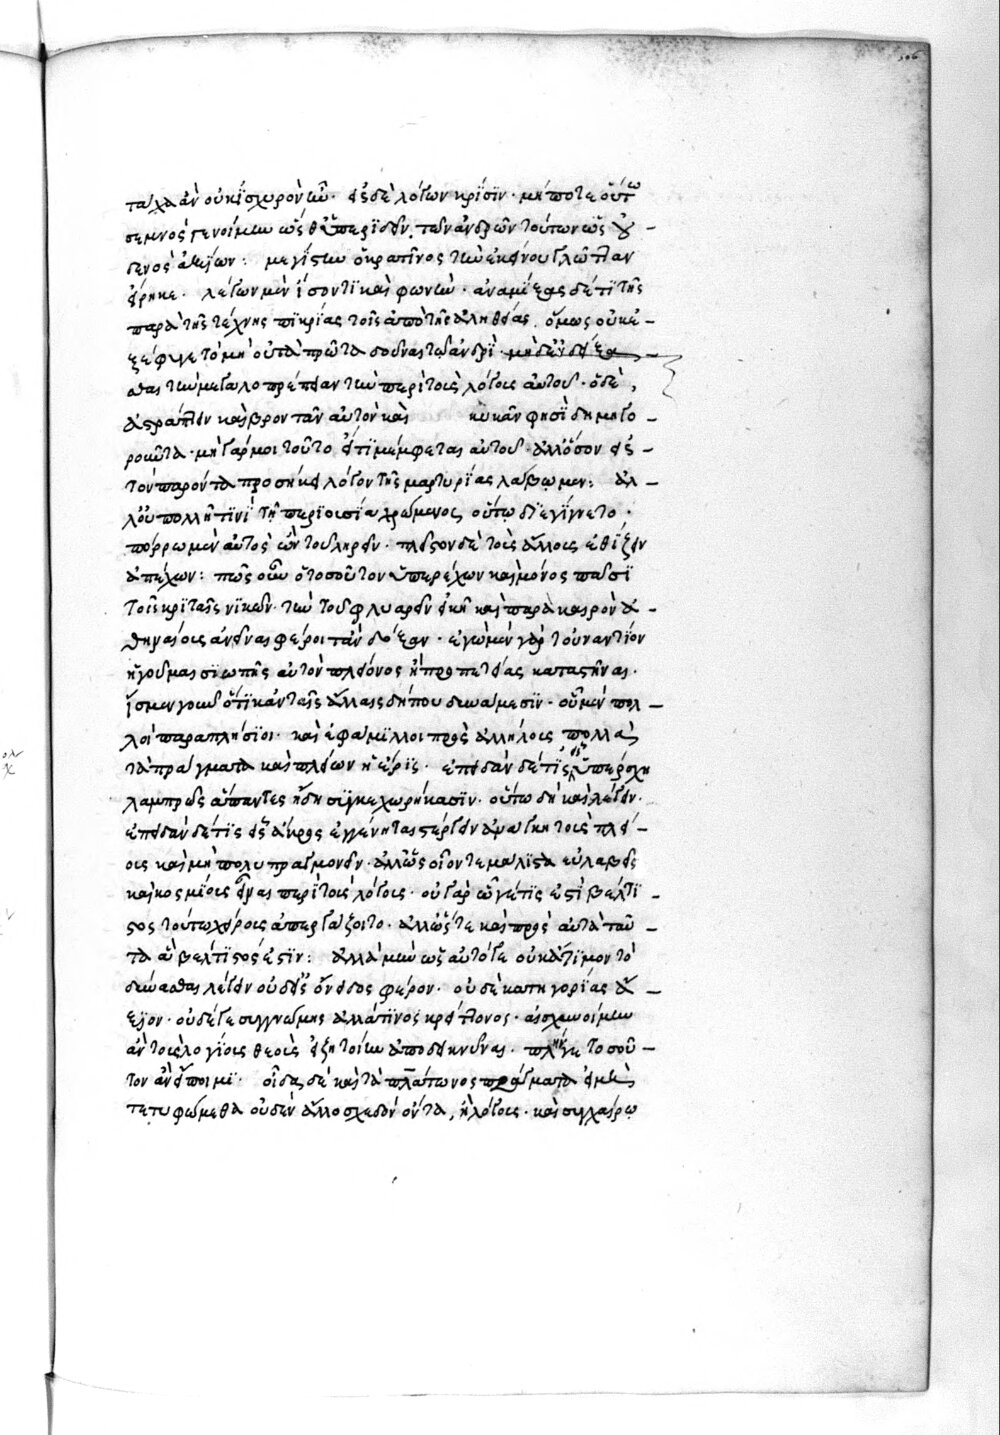 τάχα ἂν οὐκ ἰσχυρὸν ὦ. εἰς δὲ λόγων κρίσιν. μήποτε οὕτω
σεμνὸς γενοίμην ὥσθ' ὑπεριδεῖν τῶν ἀνδρῶν τούτων ὡς οὐ
δενὸς ἀξίων: μεγίστην ὁ κρατῖνος τὴν ἐκείνου γλῶτταν
εἴρηκε. λέγων μὲν ἴσον τι καὶ φωνῶν. ἀναμίξας δέ τι τῆς
παρὰ τῆς τέχνης πικρίας τοῖς ἀπὸ τῆς ἀληθείας. ὅμως οὐκ ἐ
ξέφυγε τὸ μὴ οὐ τὰ πρῶτα δοῦναι τῷ ἀνδρὶ. μηδὲν δείξα
σθαι τὴν μεγαλοπρέπειαν τὴν περὶ τοὺς λόγους αὐτοῦ. ὁ δὲ
ἀστράπτειν καὶ βροντᾶν αὐτὸν καὶ κυκᾶν φησὶ δημηγο
ροῦντα. μὴ γάρ μοι τοῦτο εἴ τι μέμφεται αὐτοῦ. ἀλλ' ὅσον εἰς
τὸν παρόντα προσήκει λόγον τῆς μαρτυρίας λάβωμεν: ἀλ
λ' οὐ πολλῇ τινὶ τῇ περιουσίᾳ χρώμενος οὕτω διεγίγνετο.
πόρρω μὲν αὐτὸς ὢν τοῦ ληρεῖν. πλεῖστον δὲ τοὺς ἄλλους ἐθίζειν
ἀπέχων: πῶς οὖν ὁ τοσοῦτον ὑπερέχων καὶ μόνος πᾶσι
τοῖς κριταῖς νικῶν. τὴν τοῦ φλυαρεῖν εἰκῆ καὶ παρὰ καιρὸν ἀ
θηναίοις ἀνεῖναι φέροιτ' ἂν δόξαν. ἐγὼ μὲν γὰρ τοὐναντίον
ἡγοῦμαι σιωπῆς αὐτὸν πλέονος ἢ προπετείας καταστῆναι.
ἴσμεν γοῦν ὅτι κἀν ταῖς ἄλλαις δήπου δυνάμεσιν. οὗ μὲν πολ
λοὶ παραπλήσιοι. καὶ ἐφάμιλλοι πρὸς ἀλλήλους πολλὰ
τὰ πράγματα καὶ πλείων ἡ ἔρις. ἐπειδὰν δέ τις εἷς ὑπερόχῃ
λαμπρῶς ἅπαντες ἤδη συγκεχωρήκασιν. οὕτω δὴ καὶ λέγειν.
ἐπειδὰν δέ τις εἷς ἄκρος ἐγγένηται στέργειν ἀνάγκη τοὺς πλεί
ους καὶ μὴ πολυπραγμονεῖν. ἀλλ' ὡς οἷόν τε μάλιστα εὐλαβεῖς
καὶ κοσμίους εἶναι περὶ τοὺς λόγους. οὐ γὰρ ὧν γέ τις ἐστὶ βέλτι
στος τούτῳ χείρους ἀπεργάζοιτο. ἄλλως τε καὶ πρὸς αὐτὰ ταῦ
τα ἃ βέλτιστός ἐστιν: ἀλλὰ μὴν ὡς αὐτό γε οὐκ ἄτιμον τὸ
δύνασθαι λέγειν οὐδ' εἰς ὄνειδος φέρον. οὐδὲ κατηγορίας ἄ
ξιον. οὐδέ γε συγγνώμης ἀλλά τινος κρείττονος. αἰσχυνοίμην
ἂν τοὺς λογίους θεοὺς εἰ ζητοίην ἀποδεικνύναι. πλήν γε τοσοῦ
τον ἂν εἴποιμι. οἶδας δὲ καὶ τὰ πλάτωνος πράγματα εἰ μὲν
τετυφώμεθα οὐδὲν ἄλλο σχεδὸν ὄντα, ἢ λόγους. καὶ συγχαίρω